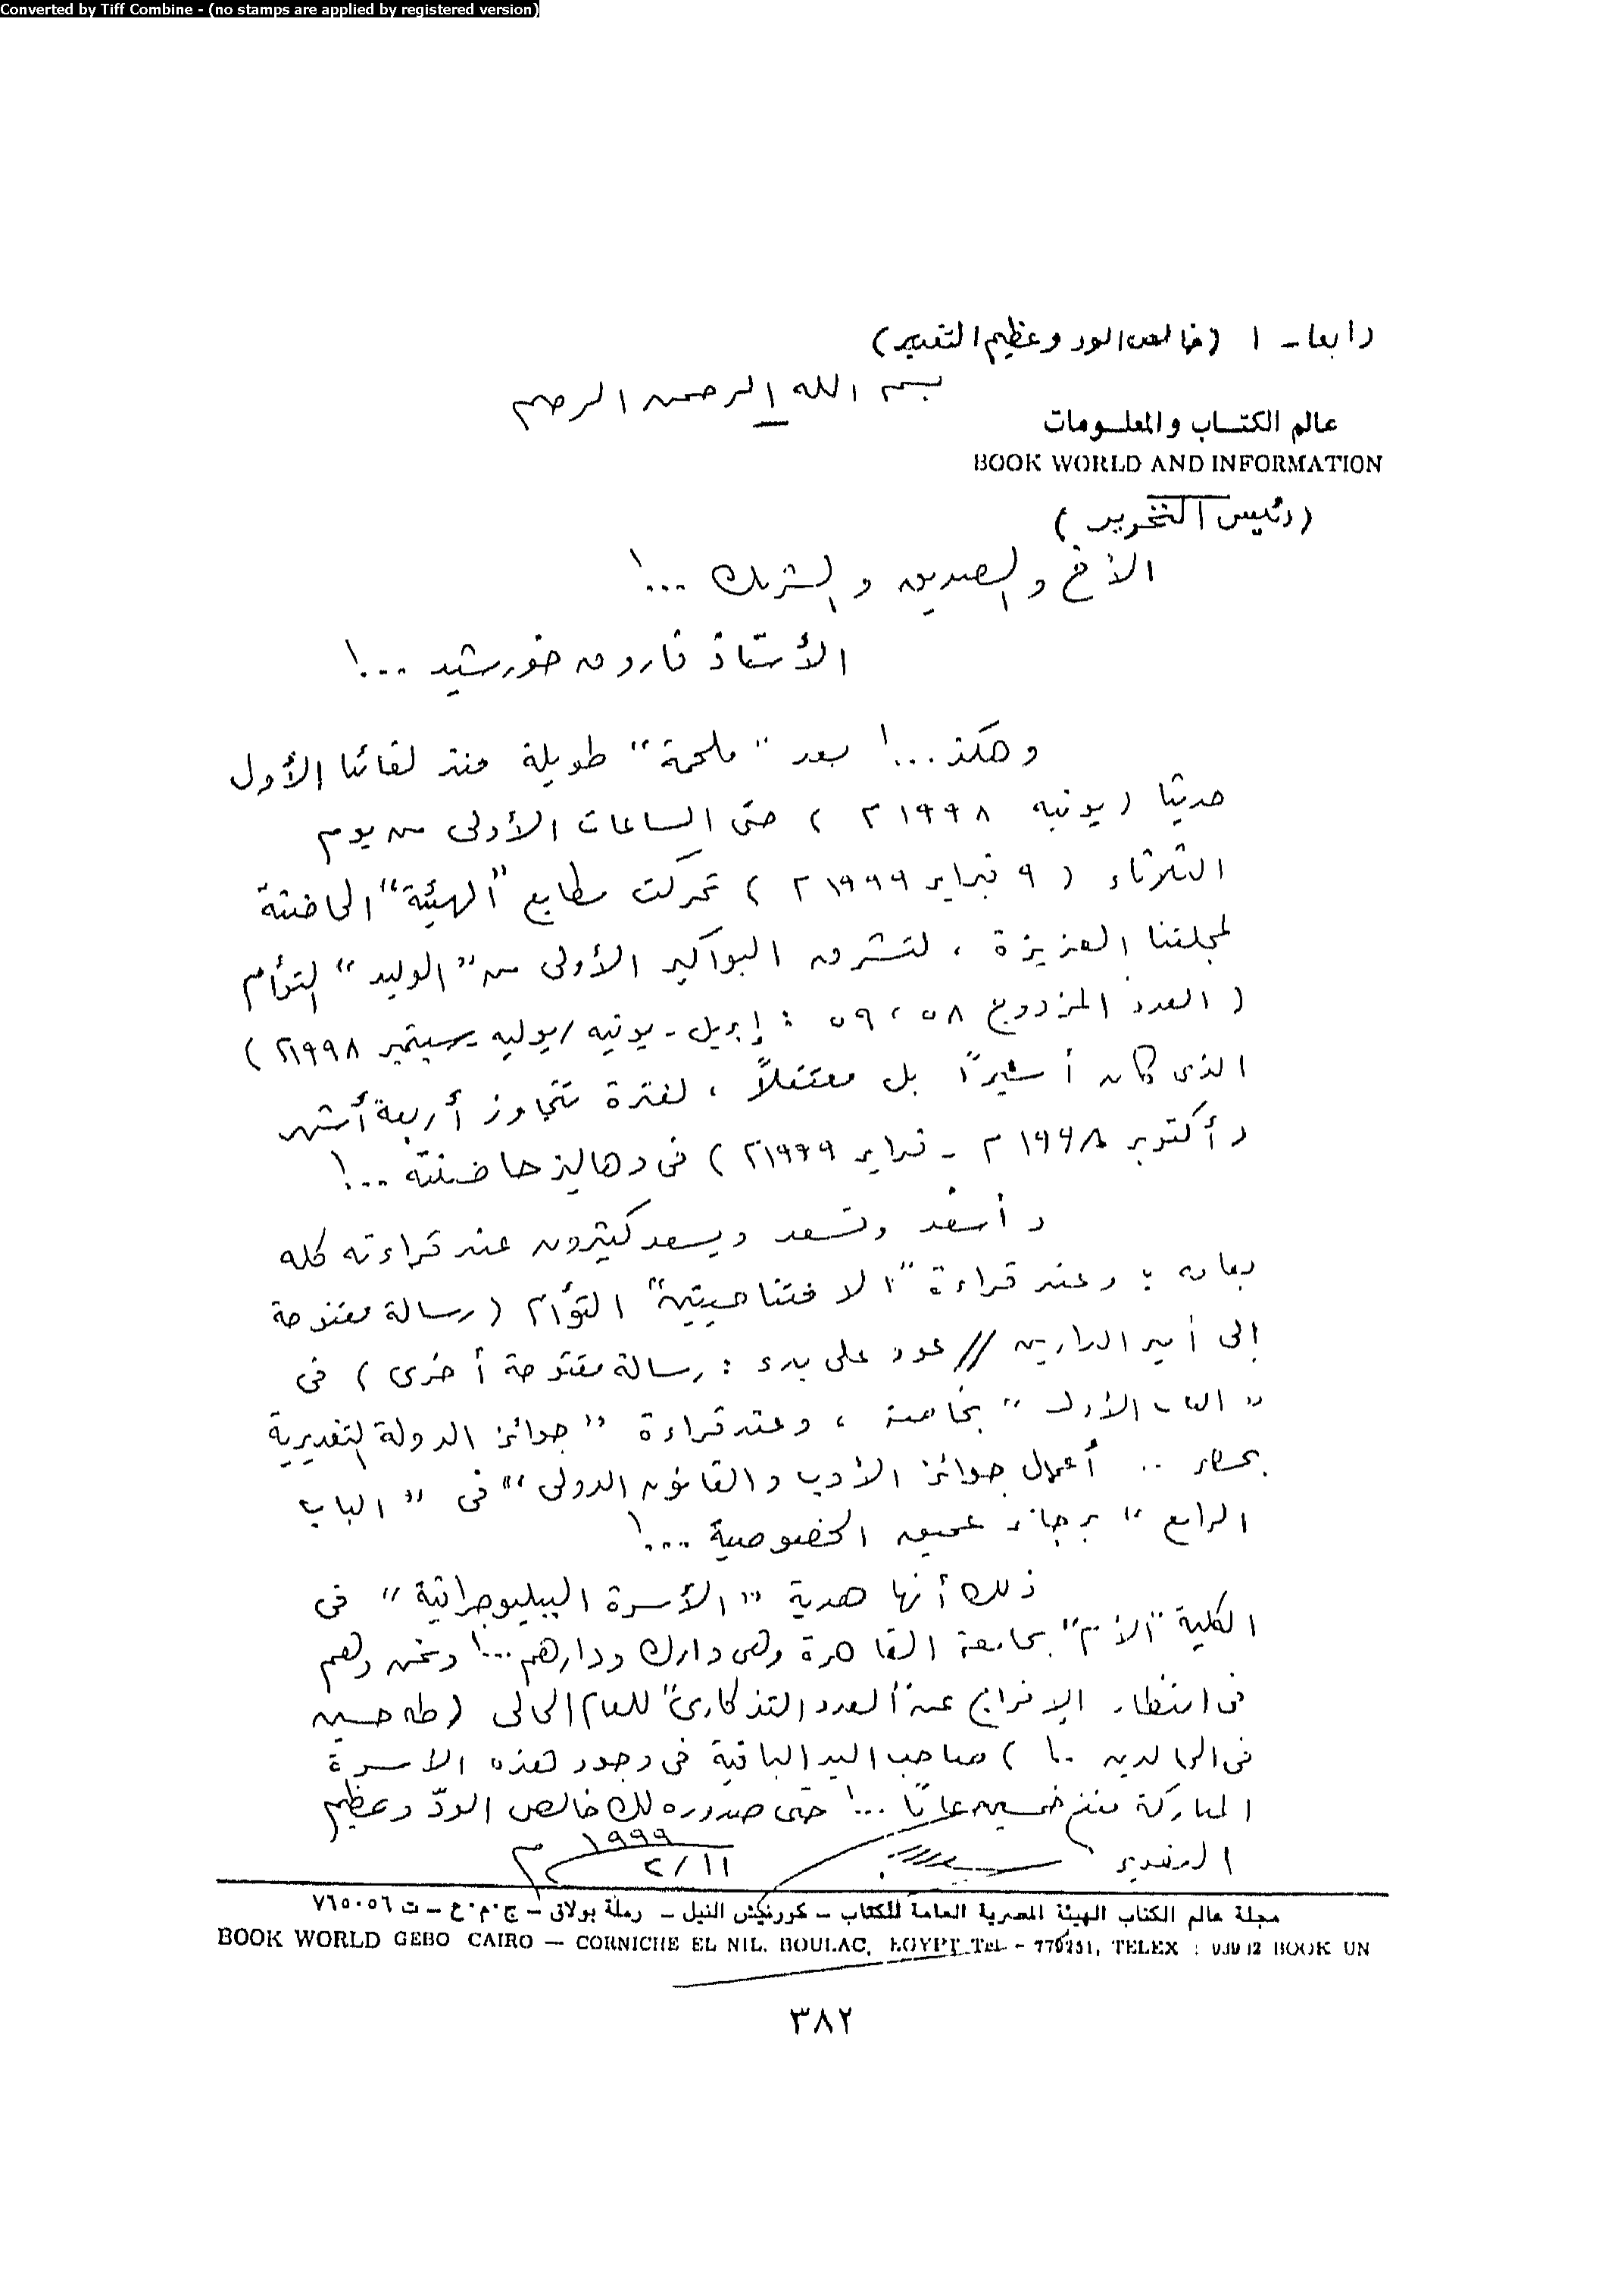 Converted by Tiff Combine - (no stamps are applied by registered version)
رابعا - ١ (خالص الود وعظيم التقدير)
بسم الله الرحمن الرحيم
عالم الكتـاب والمعلـومات
BOOK WORLD AND INFORMATION
(رئيس التحرير)
الأخ والصديق والشريك ...!
الأستاذ فاروق خورشيد ...!
وهكذ...! بعد "ملحمة" طويلة منذ لقائنا الأول
حديثا (يونيه ١٩٩٨م) حتى الساعات الأولى من يوم
الثلاثاء (٩ فبراير ١٩٩٩م) تحركت مطابع "الهيئة" الحاضنة
لمجلتنا العزيزة، لتشرق البواكير الأولى من "الوليد" التوأم
(العدد المزدوج ٥٨، ٥٩ : إبريل - يونيه / يوليه - سبتمبر ١٩٩٨م)
الذى كان أسيراً بل معتقلاً، لفترة تتجاوز أربعة أشهر
(أكتوبر ١٩٩٨م - فبراير ١٩٩٩م) فى دهاليز حاضنته ...!
وأسعد وتسعد ويسعد كثيرون عند قراءته كله
وعند قراءة "الافتتاحيتين" التوأم (رسالة مفتوحة
إلى أمير الدارين // عود على بدء : رسالة مفتوحة أخرى) فى
"الباب الأول" بخاصة، وعند قراءة "جوائز الدولة التقديرية
بمصر .. أعمال جوائز الأدب والقانون الدولى" فى "الباب
الرابع" برجاء عميق الخصوصية ...!
ذلك أنها هدية "الأسرة الببليوجرافية" فى
الكلية "الأم" بجامعة القاهرة وهى دارك ودارهم ...! ونحن وهم
فى انتظار الإفراج عن "العدد التذكارى" للعام الحالى (طه حسين
فى الخالدين ..!) صاحب اليد الباقية فى وجود هذه الأسرة
المباركة منذ خمسين عامًا ...! حتى صدوره لك خالص الودّ وعظيم
التقدير
١٩٩٩
٢/١١ م
مجلة عالم الكتاب الهيئة المصرية العامة للكتاب - كورنيش النيل - رملة بولاق - ج.م.ع - ت ٧٦٥٠٥٦
BOOK WORLD GEBO CAIRO — CORNICHE EL NIL. BOULAC, EGYPT Tel - TELEX : BOOK UN
٣٨٢